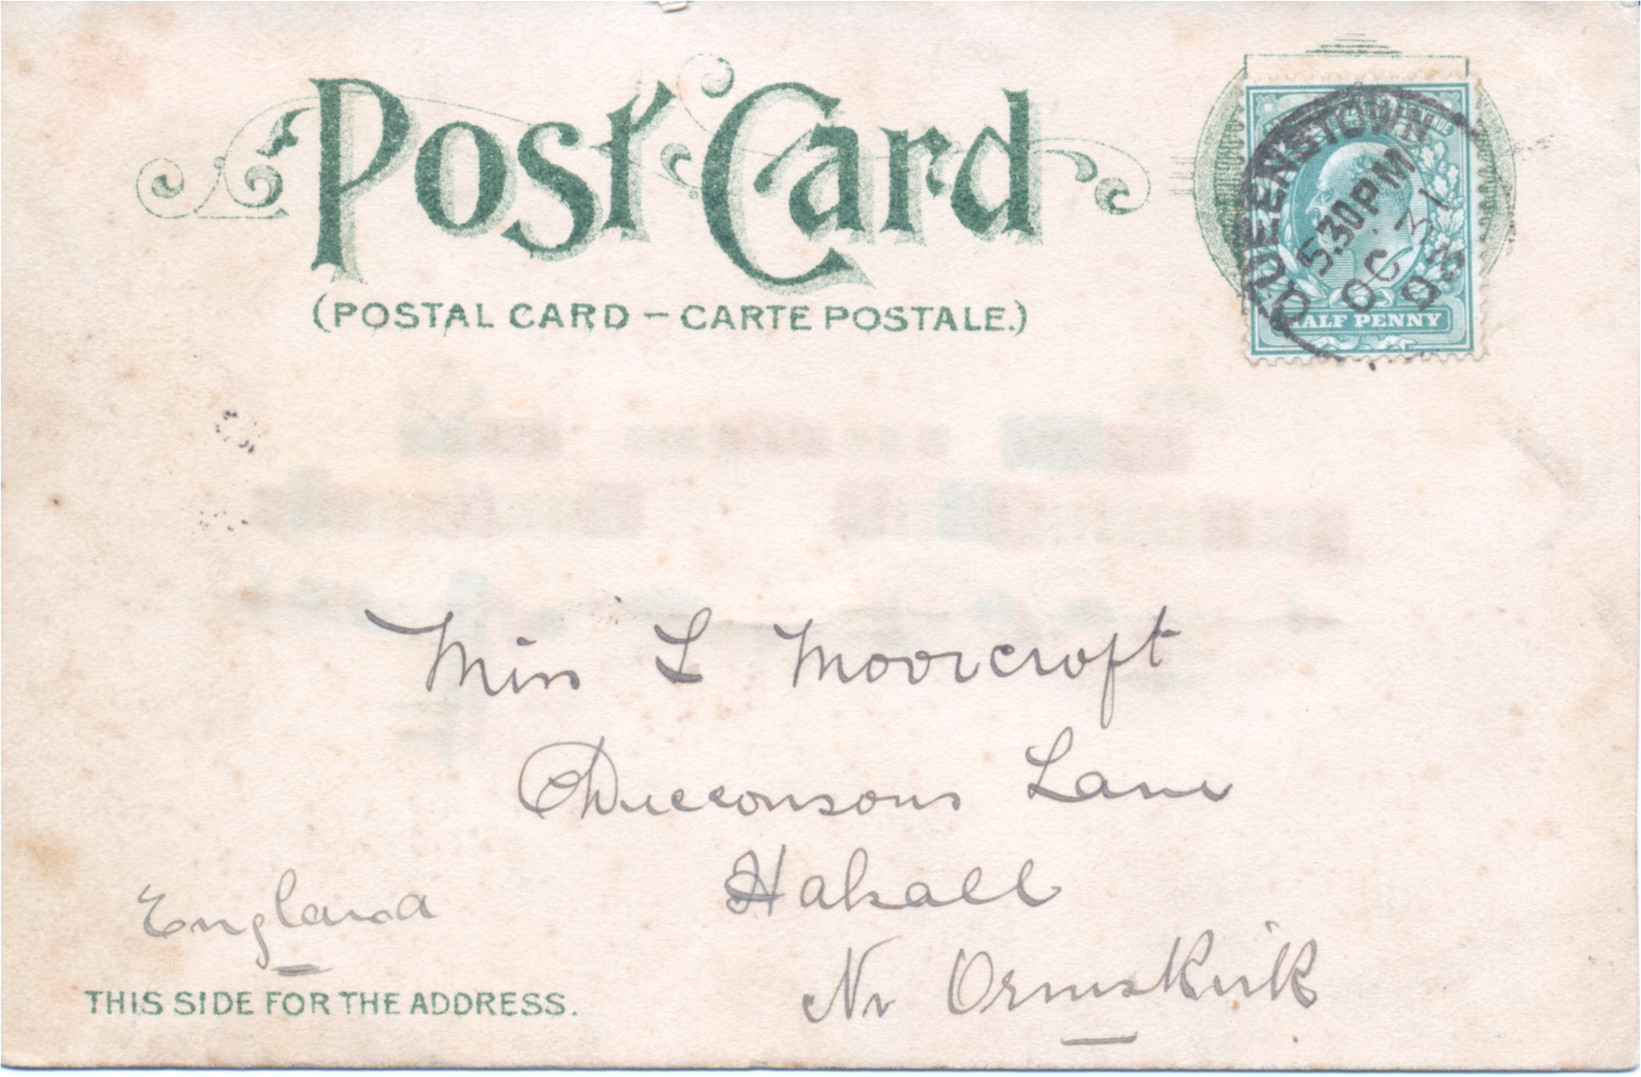 Post Card
(POSTAL CARD – CARTE POSTALE.)
QUEENSTOWN
5.30 PM
OC 31
03
HALF PENNY
Miss L Moorcroft
Ducconsons Lane
Halsall
Nr Ormskirk
England
THIS SIDE FOR THE ADDRESS.